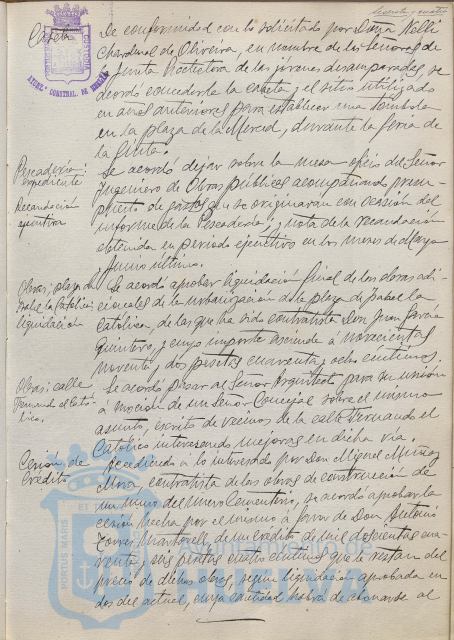 De conformidad con lo solicitado por Doña Nelli
Chardinal de Oliveira, en nombre de las Señoras de
la Junta Protectora de las jóvenes desamparadas, se
acordó concederle la caseta y el sitio utilizado
en años anteriores para establecer una tómbola
en la plaza de la Merced, durante la feria de
la
Pescadería:
expediente
Recaudación
ejecutiva
Se acordó dejar sobre la mesa oficio del Señor
Ingeniero de Obras públicas acompañando presu-
puesto de gastos que se originaran con ocasión del
informe de la Pescadería; y nota de la recaudación
obtenida en periodo ejecutivo en los meses de Mayo
Junio último.
Obras: plaza de
Isabel la Católica:
liquidación
Se acordó aprobar liquidación final de las obras adi-
cionales de la urbanización de la plaza de Isabel la
Católica, de las que ha sido contratista Don Juan García
Quintero, y cuyo importe asciende a novecientas
noventa y dos pesetas cuarenta y ocho céntimos.
Obras: calle
Fernando el Cató-
lico.
Se acordó pasar al Señor Arquitecto para su unión
a moción de un Señor Concejal sobre el mismo
asunto, escrito de vecinos de la calle Fernando el
Católico interesando mejoras en dicha vía.
Cesión de
Crédito
Accediendo a lo interesado por Don Miguel Muñoz
Mora, contratista de las obras de construcción de
un muro del nuevo Cementerio, se acordó aprobar la
cesión hecha por el mismo a favor de Don Antonio
Torres Martorell, de un crédito de mil doscientas cua-
renta y seis pesetas cuatro céntimos que le restan del
precio de dichas obras, según liquidación aprobada en
dos del actual, cuya cantidad habrá de abonarse al